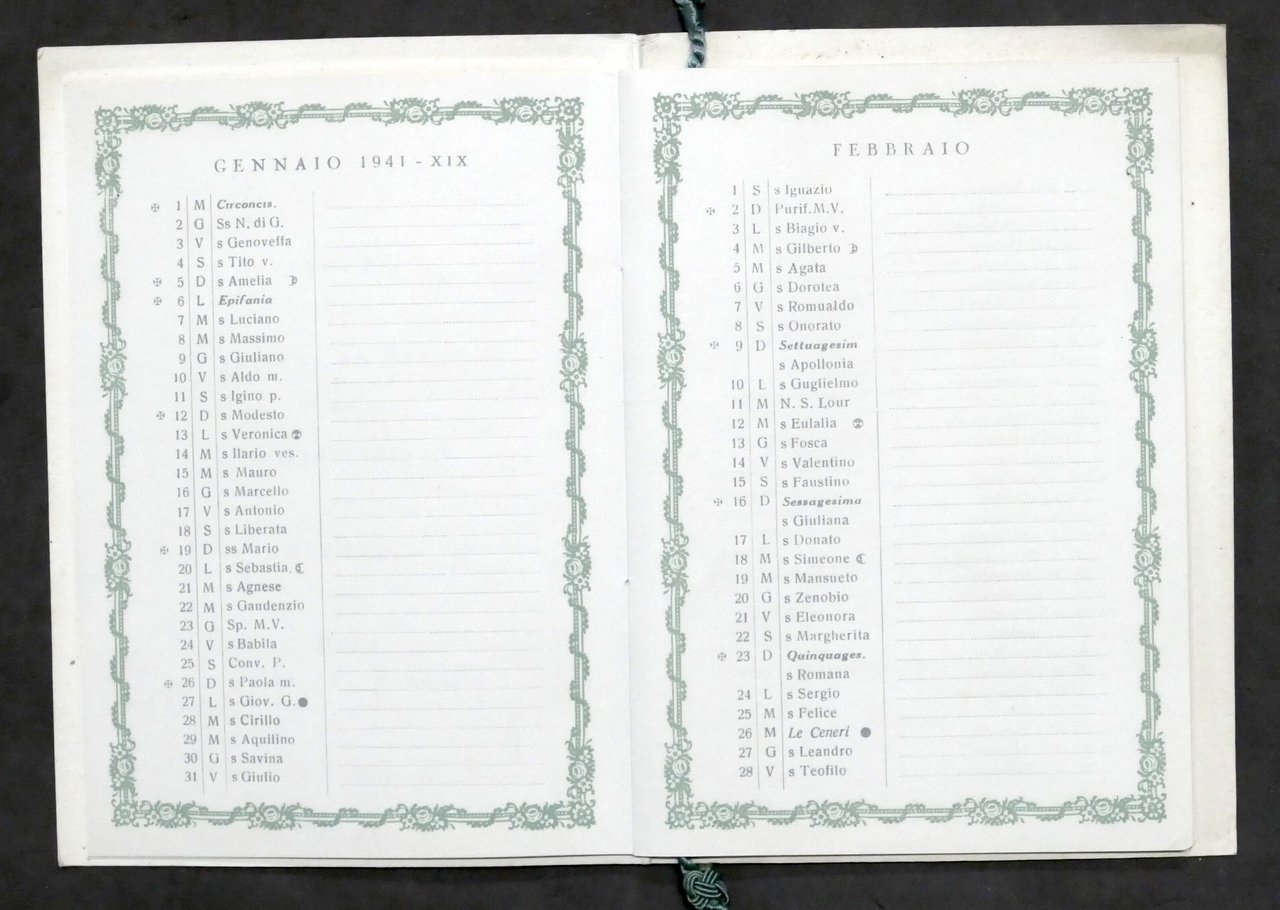 GENNAIO 1941 - XIX
✠ 1 M Circoncis.
2 G Ss N. di G.
3 V s Genoveffa
4 S s Tito v.
✠ 5 D s Amelia ☽
✠ 6 L Epifania
7 M s Luciano
8 M s Massimo
9 G s Giuliano
10 V s Aldo m.
11 S s Igino p.
✠ 12 D s Modesto
13 L s Veronica
14 M s Ilario ves.
15 M s Mauro
16 G s Marcello
17 V s Antonio
18 S s Liberata
✠ 19 D ss Mario
20 L s Sebastia. ☾
21 M s Agnese
22 M s Gaudenzio
23 G Sp. M.V.
24 V s Babila
25 S Conv. P.
✠ 26 D s Paola m.
27 L s Giov. G. ●
28 M s Cirillo
29 M s Aquilino
30 G s Savina
31 V s Giulio
FEBBRAIO
1 S s Ignazio
✠ 2 D Purif. M.V.
3 L s Biagio v.
4 M s Gilberto ☽
5 M s Agata
6 G s Dorotea
7 V s Romualdo
8 S s Onorato
✠ 9 D Settuagesim
s Apollonia
10 L s Guglielmo
11 M N. S. Lour
12 M s Eulalia
13 G s Fosca
14 V s Valentino
15 S s Faustino
✠ 16 D Sessagesima
s Giuliana
17 L s Donato
18 M s Simeone ☾
19 M s Mansueto
20 G s Zenobio
21 V s Eleonora
22 S s Margherita
✠ 23 D Quinquages.
s Romana
24 L s Sergio
25 M s Felice
26 M Le Ceneri ●
27 G s Leandro
28 V s Teofilo